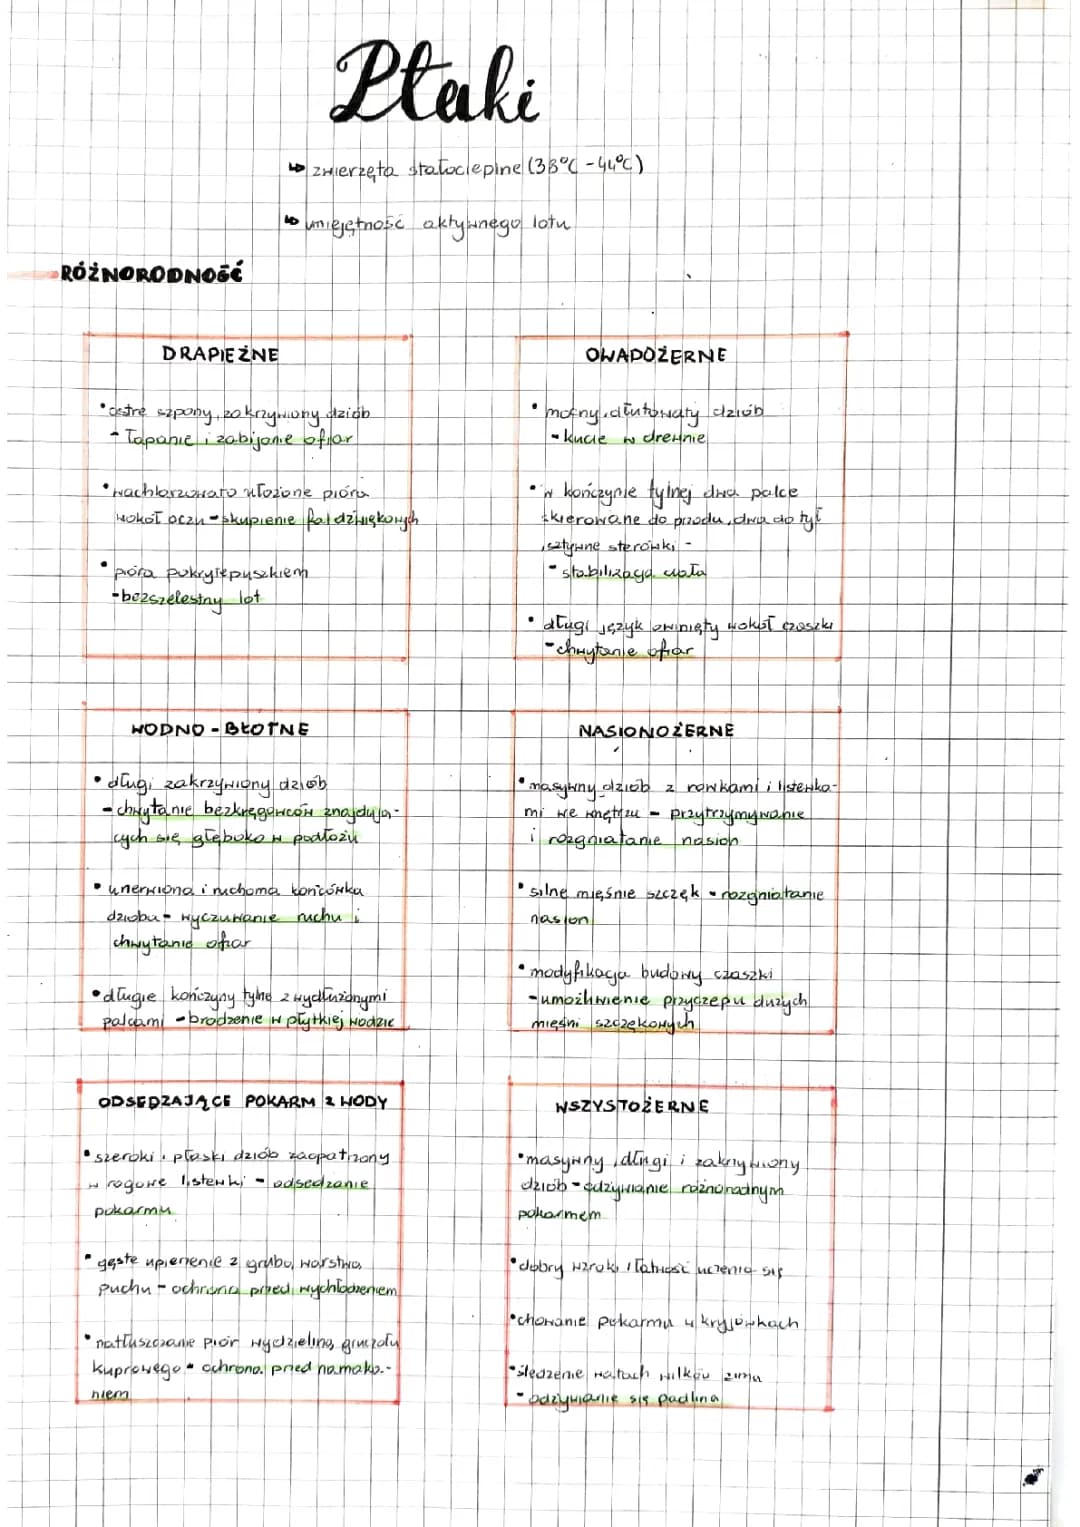 Ptaki
↳ zwierzęta stałocieplne (38°C - 44°C)
↳ umiejętność aktywnego lotu
RÓŻNORODNOŚĆ
DRAPIEŻNE
• ostre szpony, zakrzywiony dziób
- łapanie i zabijanie ofiar
• wachlarzowato ułożone pióra
wokół oczu - skupienie fal dźwiękowych
• pióra pokryte puszkiem
- bezszelestny lot
OWADOŻERNE
• mocny, dłutowaty dziób
- kucie w drewnie
• w kończynie tylnej dwa palce
skierowane do przodu, dwa do tył
, sztywne sterówki -
- stabilizacja ciała
• długi język owinięty wokół czaszki
- chwytanie ofiar
WODNO - BŁOTNE
• długi zakrzywiony dziób
- chwytanie bezkręgowców znajdują-
cych się głęboko w podłożu
• unerwiona i ruchoma końcówka
dziobu - wyczuwanie ruchu i
chwytanie ofiar
• długie kończyny tylne z wydłużonymi
palcami - brodzenie w płytkiej wodzie
NASIONOŻERNE
• masywny dziób z rowkami i listewka-
mi we wnętrzu - przytrzymywanie
i rozgniatanie nasion
• silne mięśnie szczęk - rozgniatanie
nasion
• modyfikacja budowy czaszki
- umożliwienie przyczepu dużych
mięśni szczękowych
ODSEDZAJĄCE POKARM Z WODY
• szeroki i płaski dziób zaopatrzony
w rogowe listewki - odsedzanie
pokarmu
• gęste upierzenie z grubą warstwą
puchu - ochrona przed wychłodzeniem
• natłuszczanie piór wydzieliną gruczołu
kuprowego - ochrona przed namaka-
niem
WSZYSTOŻERNE
• masywny, długi i zakrzywiony
dziób - odżywianie różnoradnym
pokarmem
• dobry wzrok i łatwość uczenia się
• chowanie pokarmu w kryjówkach
• śledzenie watach wilków zimą
- odżywianie się padliną